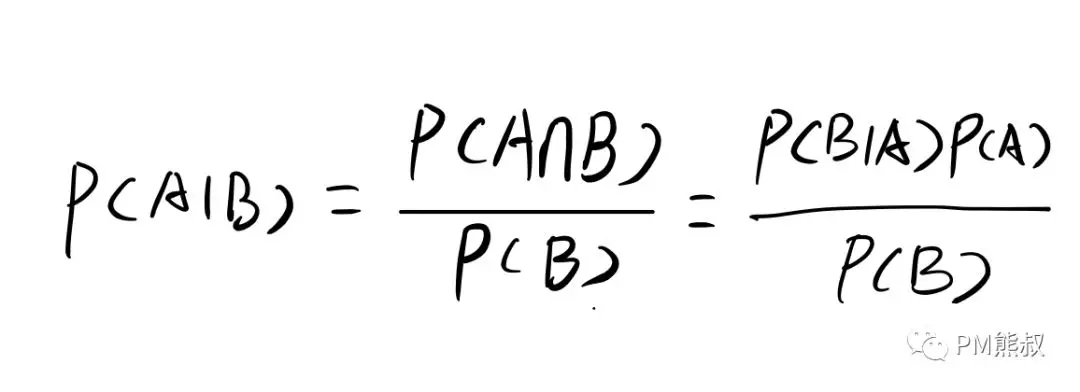 P(A|B) = P(A∩B) / P(B) = P(B|A)P(A) / P(B)
PM熊叔